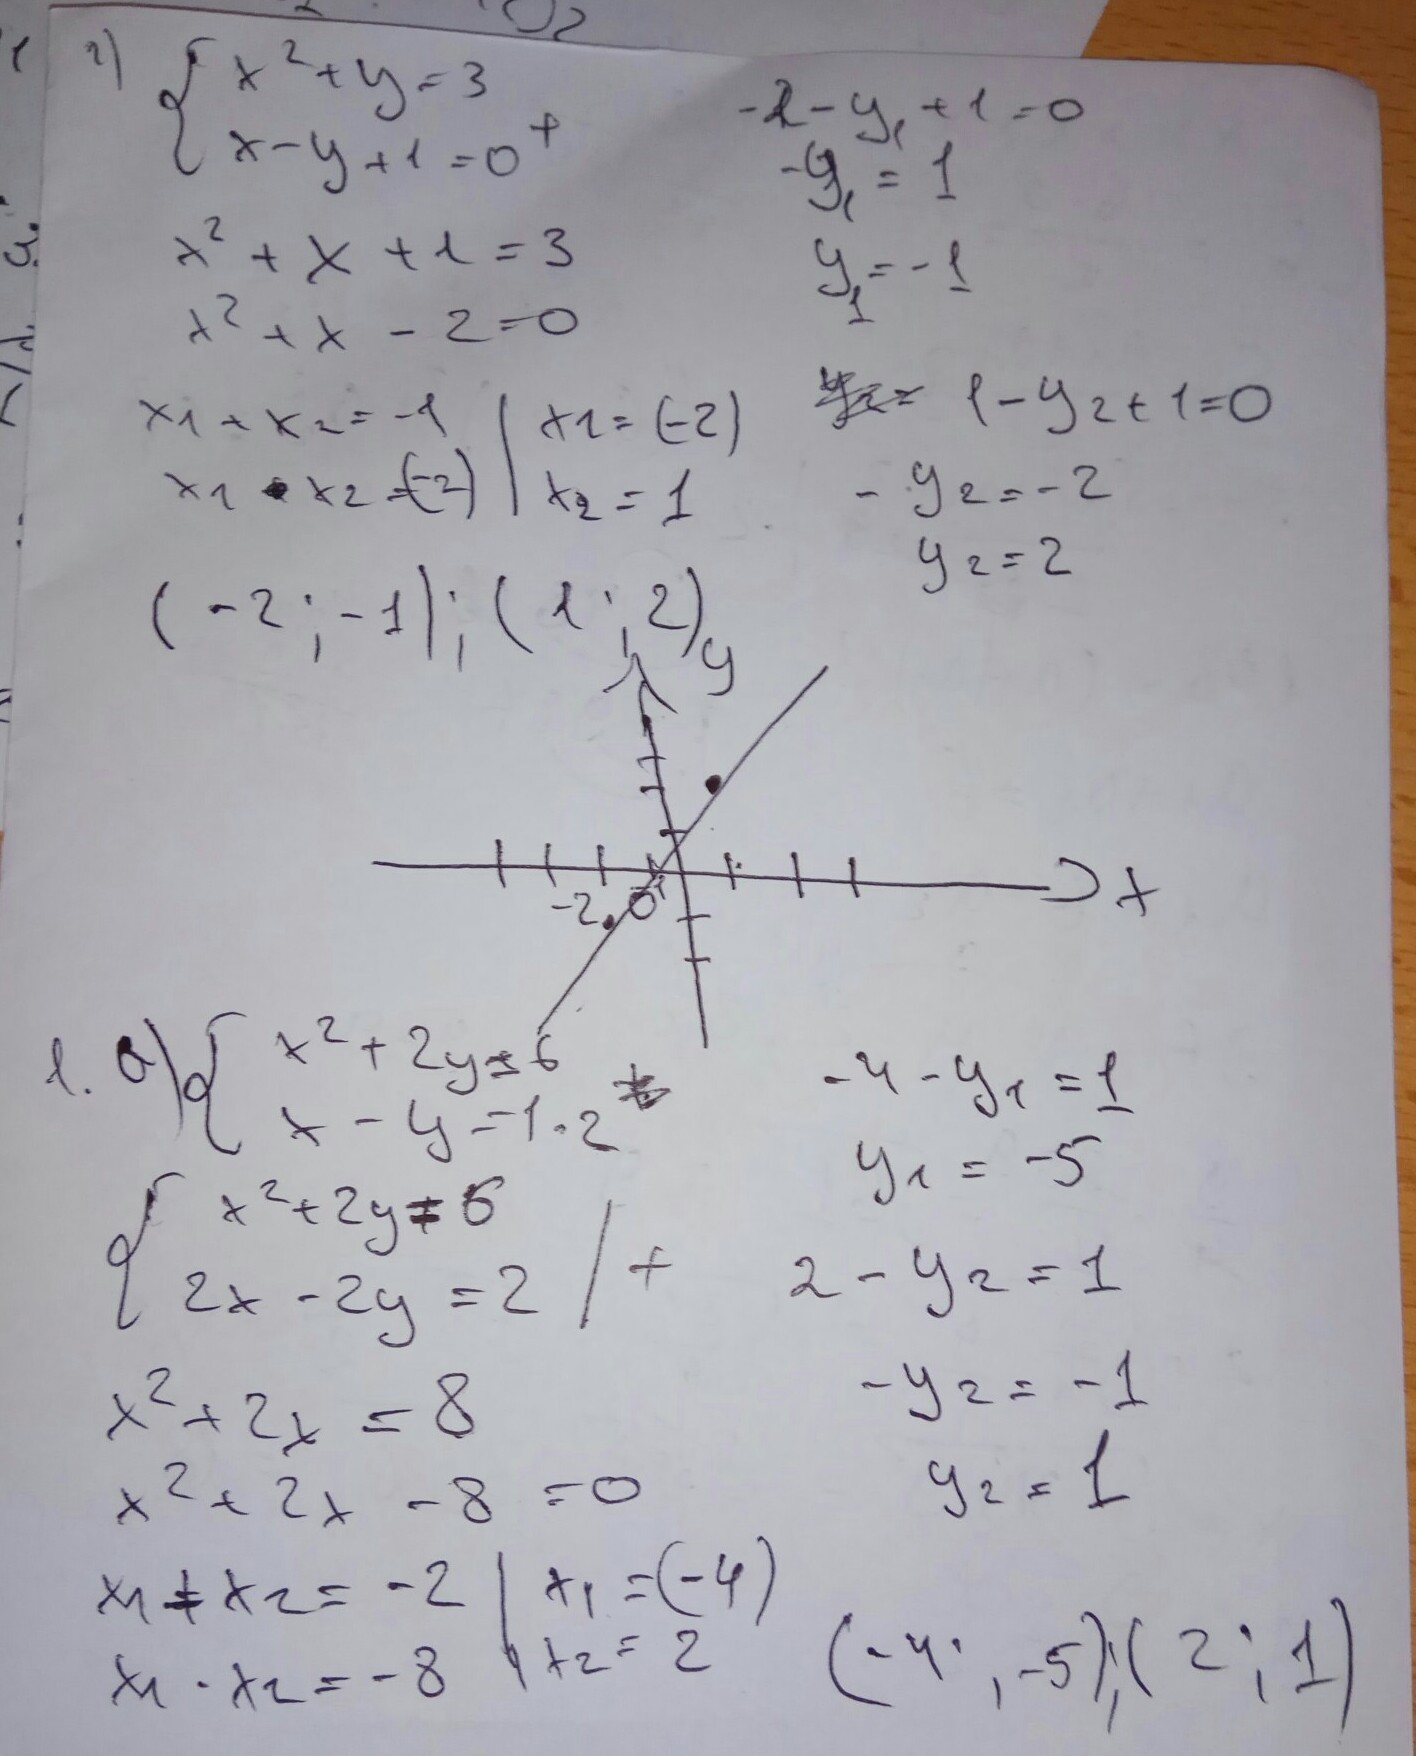 2) { x² + y = 3
x - y + 1 = 0 +
x² + x + 1 = 3
x² + x - 2 = 0
x1 + x2 = -1 | x1 = (-2)
x1 • x2 = (-2) | x2 = 1
(-2; -1); (1; 2)
-2 - y1 + 1 = 0
-y1 = 1
y1 = -1
1 - y2 + 1 = 0
-y2 = -2
y2 = 2
y
-2 0 x
1. a) { x² + 2y = 6
x - y = 1 · 2
{ x² + 2y = 6
2x - 2y = 2 / +
x² + 2x = 8
x² + 2x - 8 = 0
x1 + x2 = -2 | x1 = (-4)
x1 · x2 = -8 | x2 = 2
-4 - y1 = 1
y1 = -5
2 - y2 = 1
-y2 = -1
y2 = 1
(-4; -5); (2; 1)